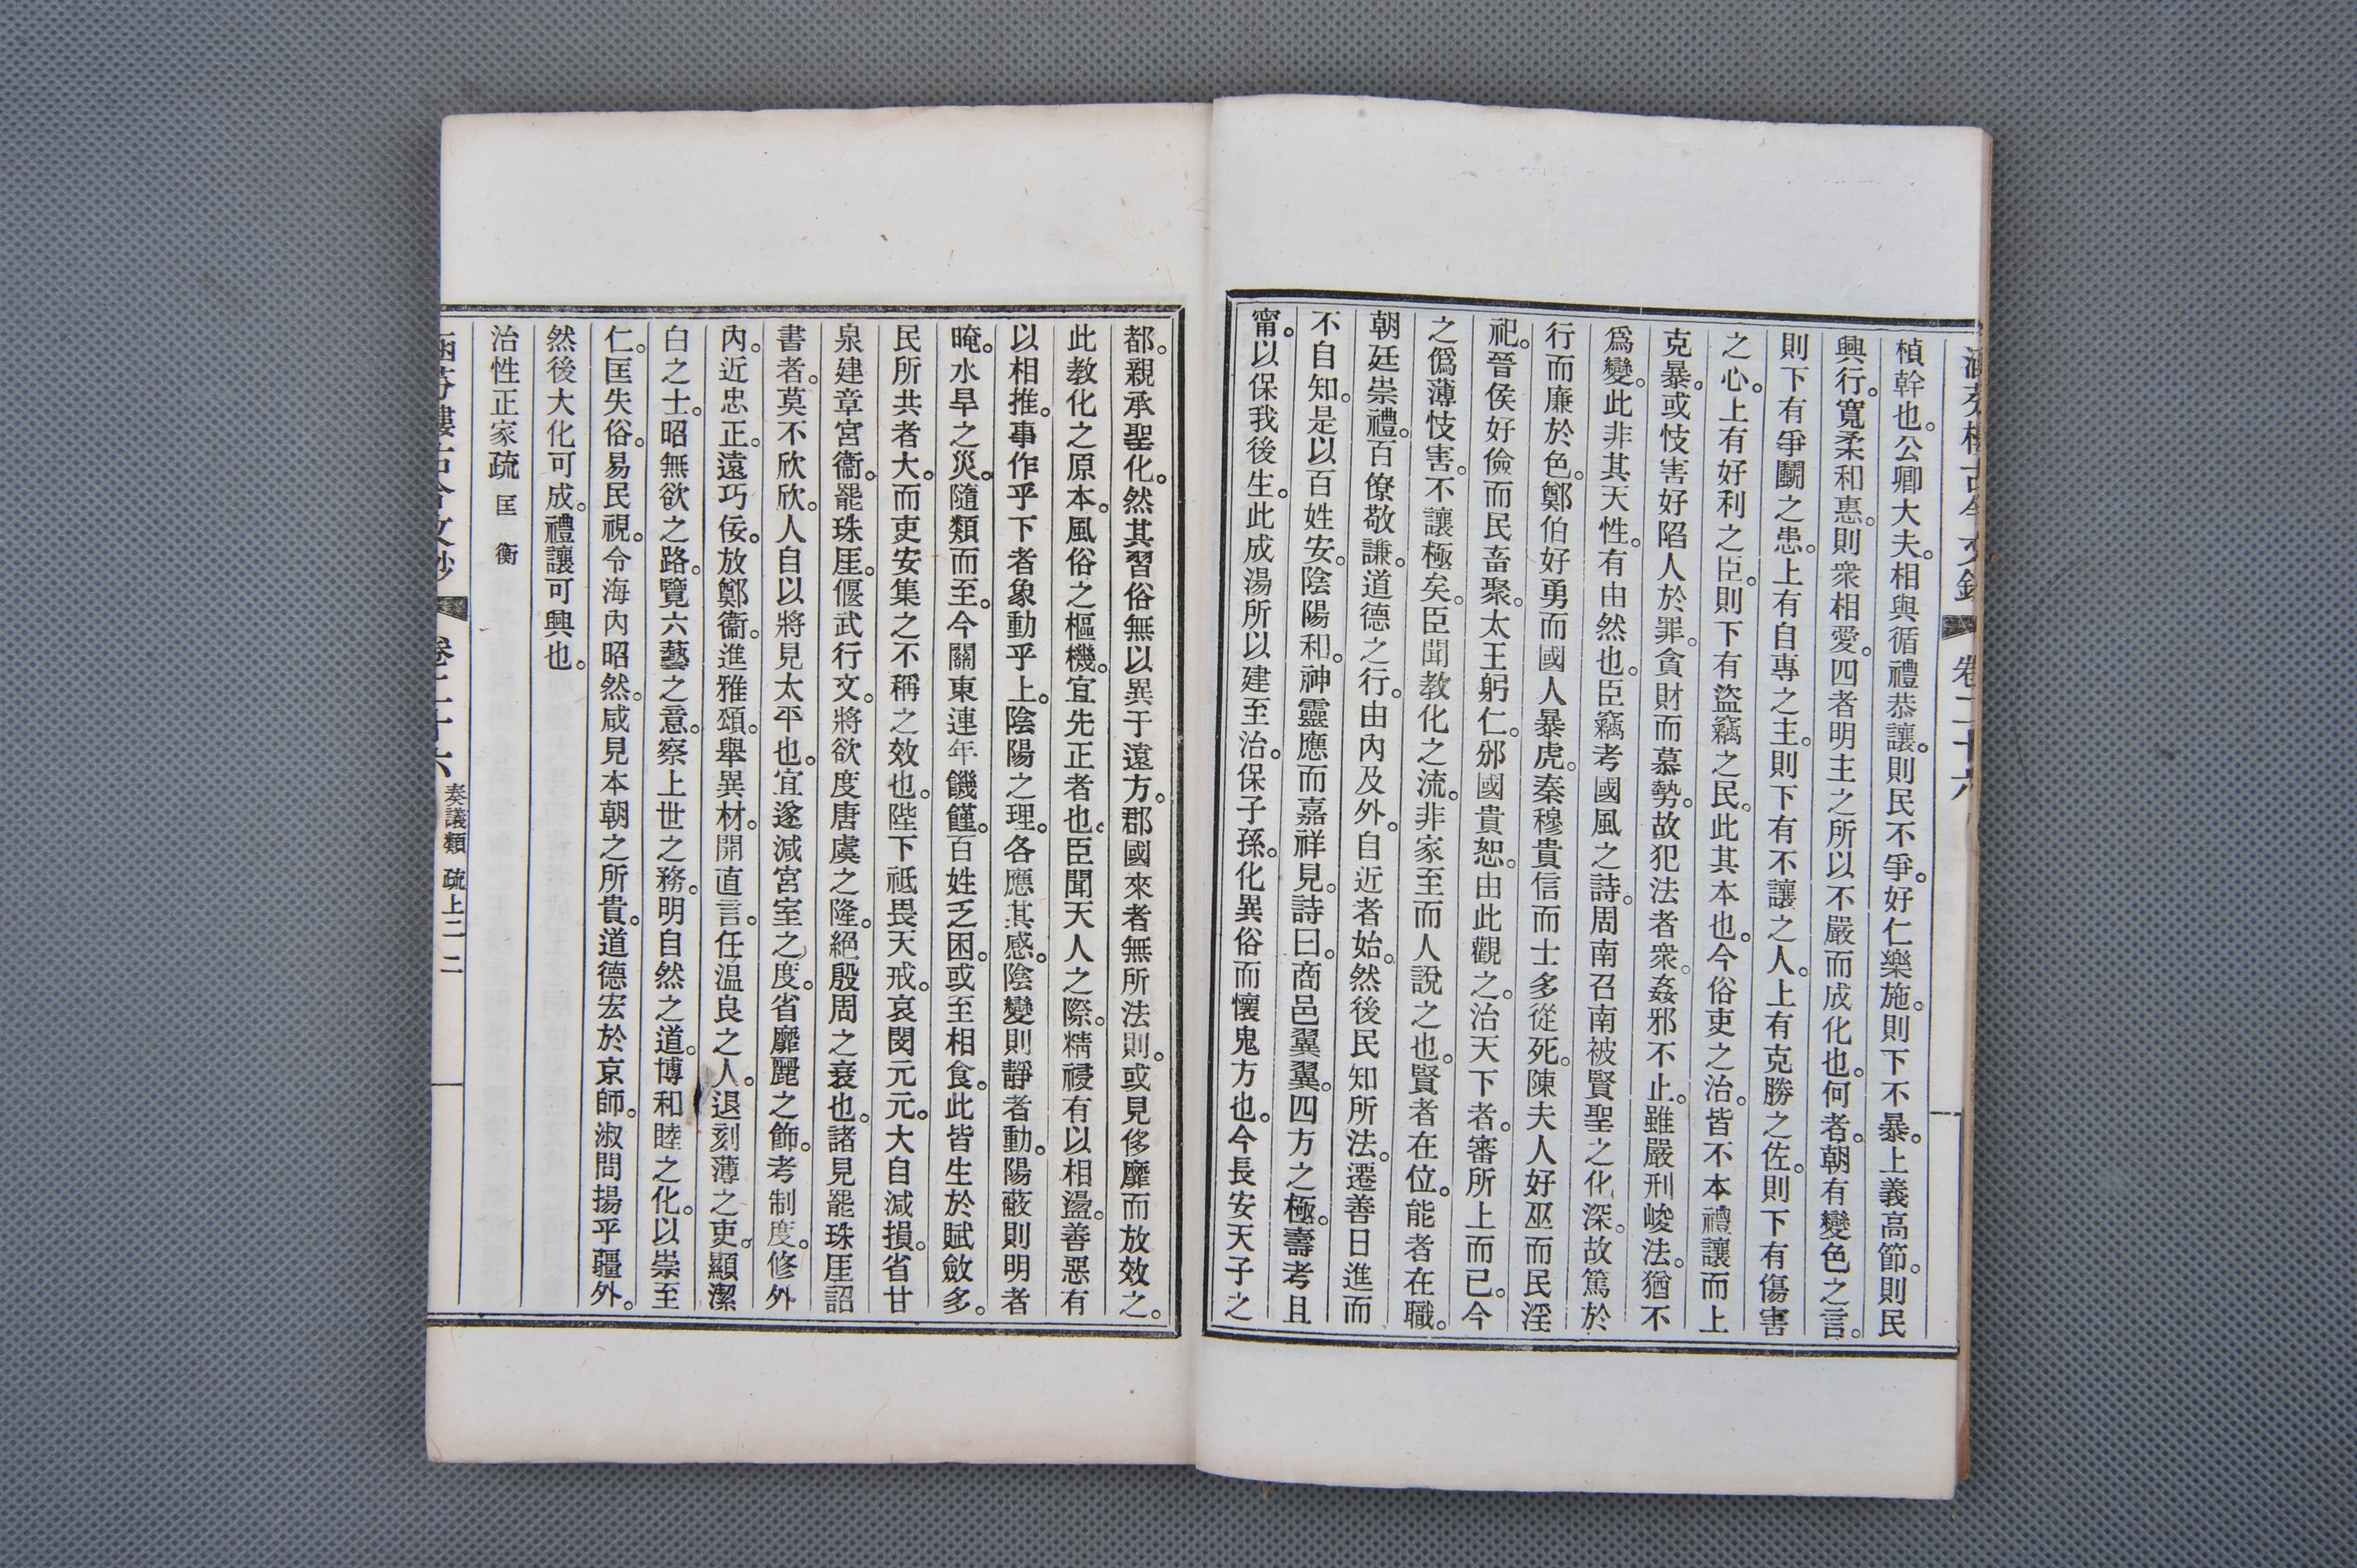 涵芬樓古今文鈔 卷二十六
楨幹也。公卿大夫。相與循禮恭讓。則民不爭。好仁樂施。則下不暴。上義高節。則民
興行。寬柔和惠。則衆相愛。四者明主之所以不嚴而成化也。何者。朝有變色之言。
則下有爭鬬之患。上有自專之主。則下有不讓之人。上有克勝之佐。則下有傷害
之心。上有好利之臣。則下有盜竊之民。此其本也。今俗吏之治。皆不本禮讓而上
克暴。或忮害好陷人於罪。貪財而慕勢。故犯法者衆。姦邪不止。雖嚴刑峻法。猶不
爲變。此非其天性。有由然也。臣竊考國風之詩。周南召南被賢聖之化深。故篤於
行而廉於色。鄭伯好勇而國人暴虎。秦穆貴信而士多從死。陳夫人好巫而民淫
祀。晉侯好儉而民畜聚。太王躬仁。邠國貴恕。由此觀之。治天下者。審所上而已。今
之僞薄忮害。不讓極矣。臣聞教化之流。非家至而人說之也。賢者在位。能者在職。
朝廷崇禮。百僚敬謙。道德之行。由內及外。自近者始。然後民知所法。遷善日進而
不自知。是以百姓安。陰陽和。神靈應而嘉祥見。詩曰。商邑翼翼。四方之極。壽考且
甯。以保我後生。此成湯所以建至治。保子孫。化異俗而懷鬼方也。今長安天子之
都。親承聖化。然其習俗無以異于遠方。郡國來者無所法則。或見侈靡而放效之。
此教化之原本。風俗之樞機。宜先正者也。臣聞天人之際。精祲有以相盪。善惡有
以相推。事作乎下者象動乎上。陰陽之理。各應其感。陰變則靜者動。陽蔽則明者
晻。水旱之災。隨類而至。今關東連年饑饉。百姓乏困。或至相食。此皆生於賦斂多。
民所共者大。而吏安集之不稱之效也。陛下祗畏天戒。哀閔元元。大自減損。省甘
泉建章宮衞。罷珠厓。偃武行文。將欲度唐虞之隆。絕殷周之衰也。諸見罷珠厓詔
書者。莫不欣欣。人自以將見太平也。宜遂減宮室之度。省靡麗之飾。考制度。修外
內。近忠正。遠巧佞。放鄭衞。進雅頌。舉異材。開直言。任温良之人。退刻薄之吏。顯潔
白之士。昭無欲之路。覽六藝之意。察上世之務。明自然之道。博和睦之化。以崇至
仁。匡失俗。易民視。令海內昭然。咸見本朝之所貴。道德宏於京師。淑問揚乎疆外。
然後大化可成。禮讓可興也。
治性正家疏 匡衡
涵芬樓古今文鈔 卷二十六 奏議類 疏上二 二